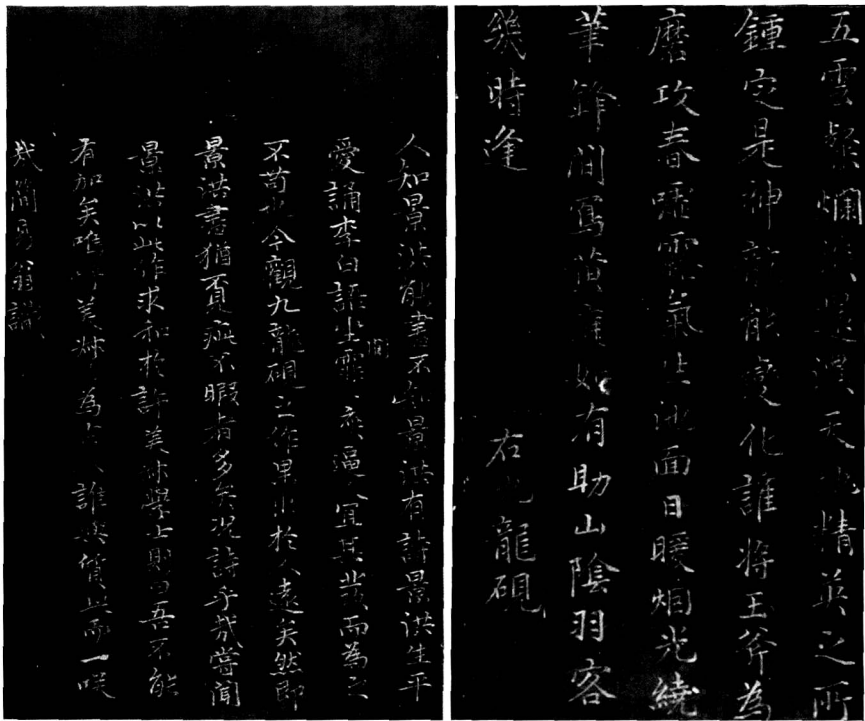 五雲粲爛洪還濃天地精英之所
鍾定是神龍能變化誰將玉斧為
磨攻春嘘雲氣生池面日暖烟光繞
筆鋒間寫黄庭如有助山陰羽客
幾時逢
右九龍硯
人知景洪能書不知景洪有詩景洪生平
愛誦李白語坐間宜其發而為之
不苟也今觀九龍硯之作果出於人遠矣然即
景洪書猶不暇者多矣况詩乎哉嘗聞
景洪以此作求和於許美禰學士則曰吾不能
有加矣噫美為古人誰與質此而一咲
哉簡易翁識